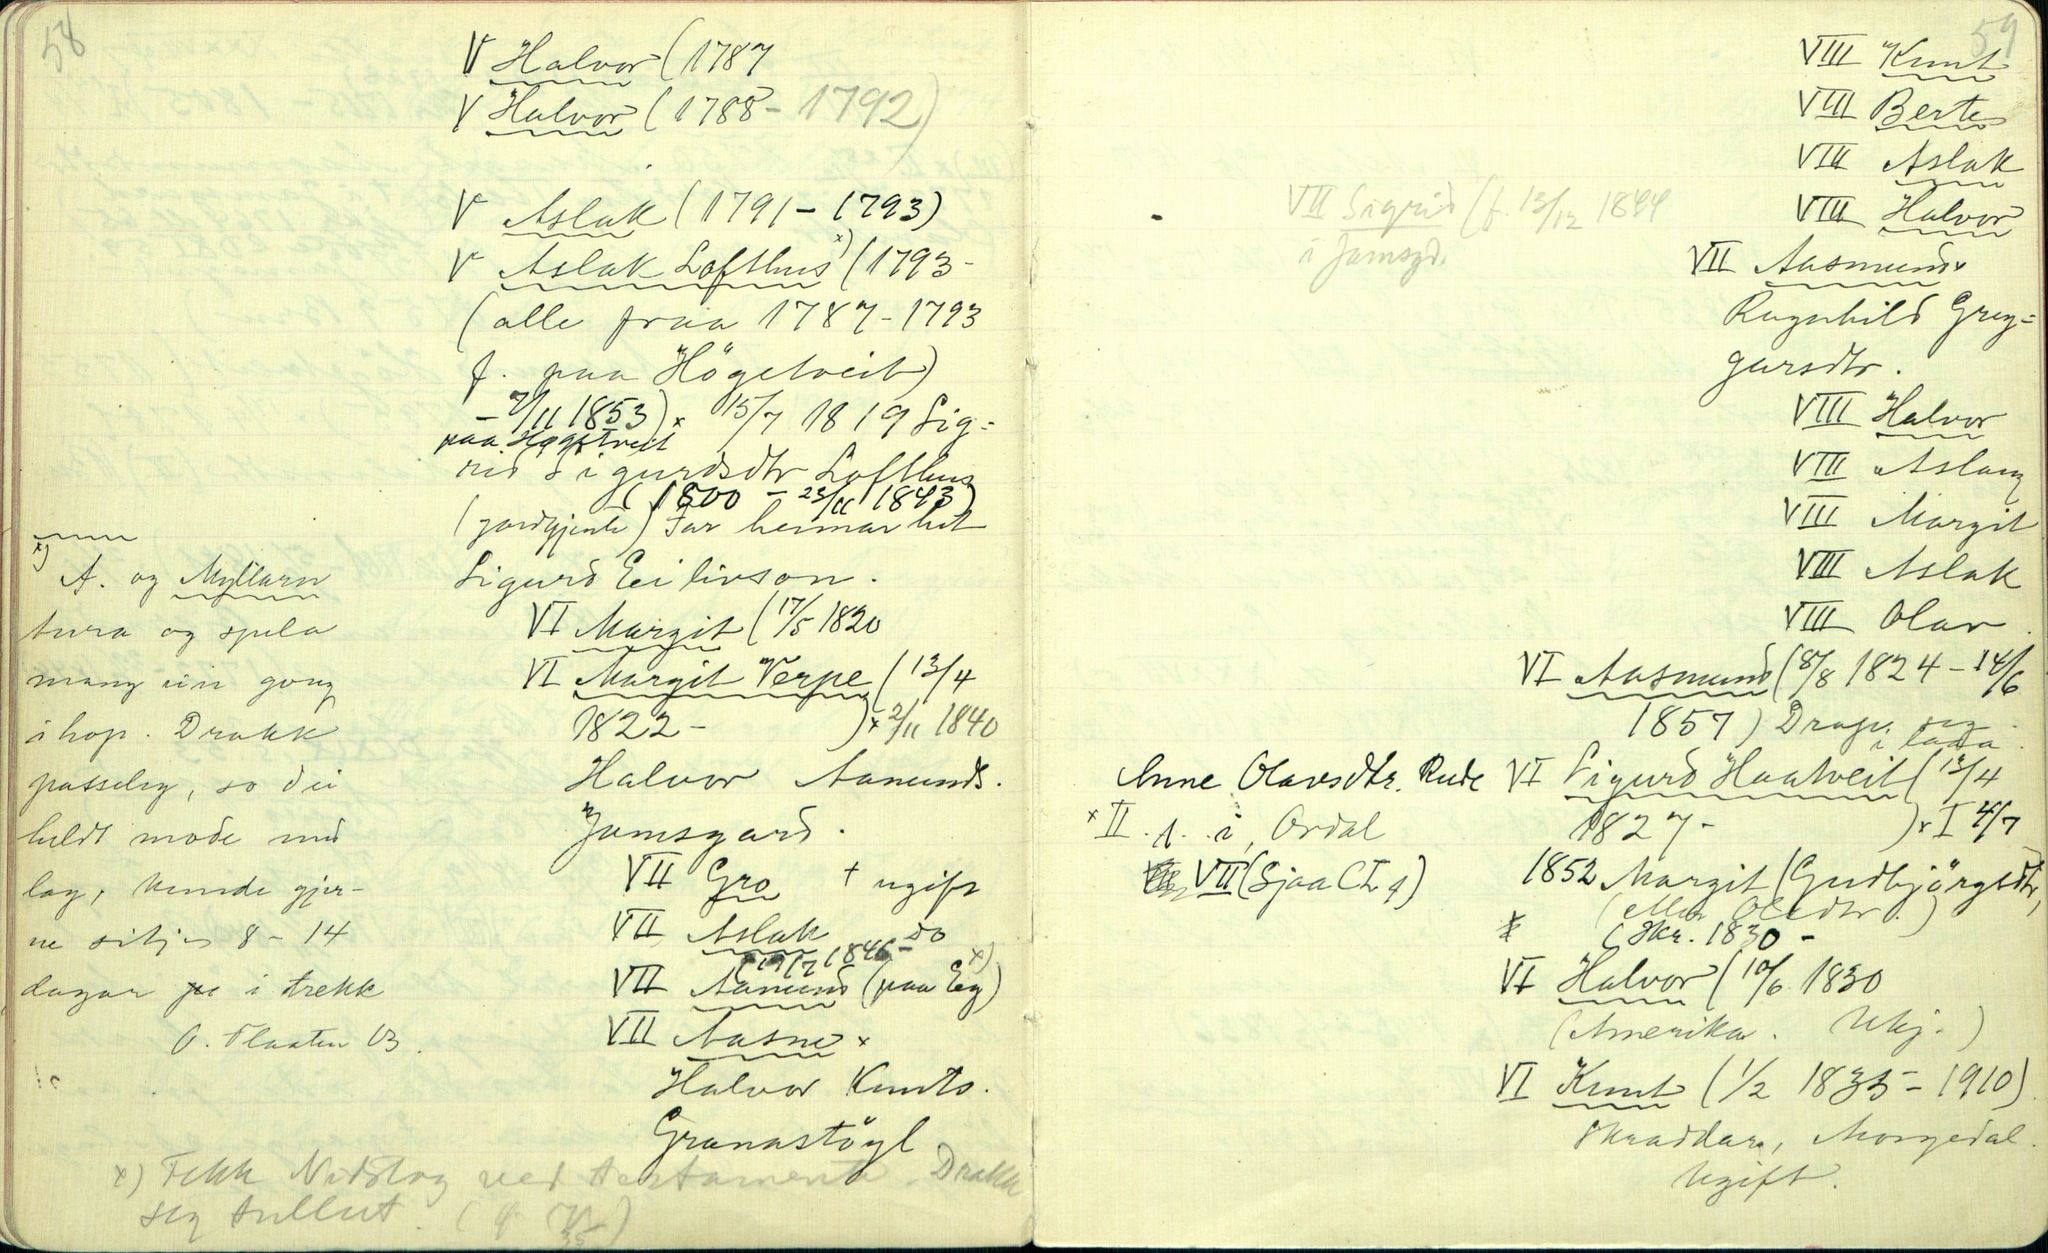 58
V Halvor (1787
V Halvor (1788 - 1792)
V Aslak (1791 - 1793)
V Aslak Lofthus x) (1793 -
(alle fraa 1787 - 1793
f. paa Högetveit)
- 7/11 1853) x 15/7 1819 Sig=
paa Högetveit
rid Sigurdsdtr Lofthus
(1800 - 23/11 1843)
(gardgjente) Far hennar het
Sigurd Eilivson.
VI Margit (17/5 1820
VI Margit Verpe (13/4
1822 - ) x 2/11 1840
Halvor Aamunds.
Jamsgard.
VII Gro + ugift
VII Aslak do
(19/7 1846 -
VII Aamund (paa Eg) x)
VII Aasne x
Halvor Knuts.
Granastöyl
x)
A. og Myllarn
tura og spela
mang ein gong
i hop. Drakk
passeleg, so dei
heldt mode med
lag, kunde gjer-
ne sitja 8 - 14
dagar i trekk
O. Flaaten 03.
x) Fekk Nordstog ved testamente. Drakk
seg tullut.
59
VIII Knut
VIII Berte
VIII Aslak
VIII Halvor
VII Sigrid (f. 13/12 1844
i Jamsgd.
VII Aasmund x
Ragnhild Greg=
garsdtr.
VIII Halvor
VIII Aslaug
VIII Margit
VIII Aslak
VIII Olav
VI Aasmund (8/8 1824 - 14/6
1857) Drap seg
i lada.
Anne Olavsdtr. Rude
x II i Ordal
VII (Sjaa CI 9)
VI Sigurd Haatveit (13/4
1827 - ) x I 4/7
1852 Margit (Gudbjörgsdtr,
(eller Olsdtr.)
(Skr. 1830 -
VI Halvor (10/6 1830
(Amerika. Ukj.)
VI Knut (1/2 1835 - 1910)
Skraddar, Morgedal.
Ugift.